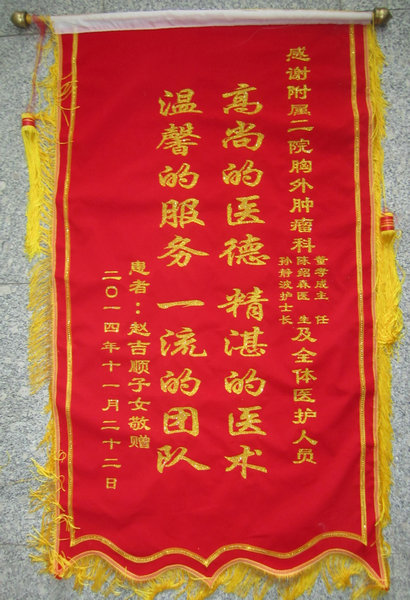 感谢附属二院胸外肿瘤科
董孝成主 任
陈绍森医 生
孙静波护士长
及全体医护人员
高尚的医德 精湛的医术
温馨的服务 一流的团队
患者：赵吉顺子女敬赠
二〇一四年十一月二十二日